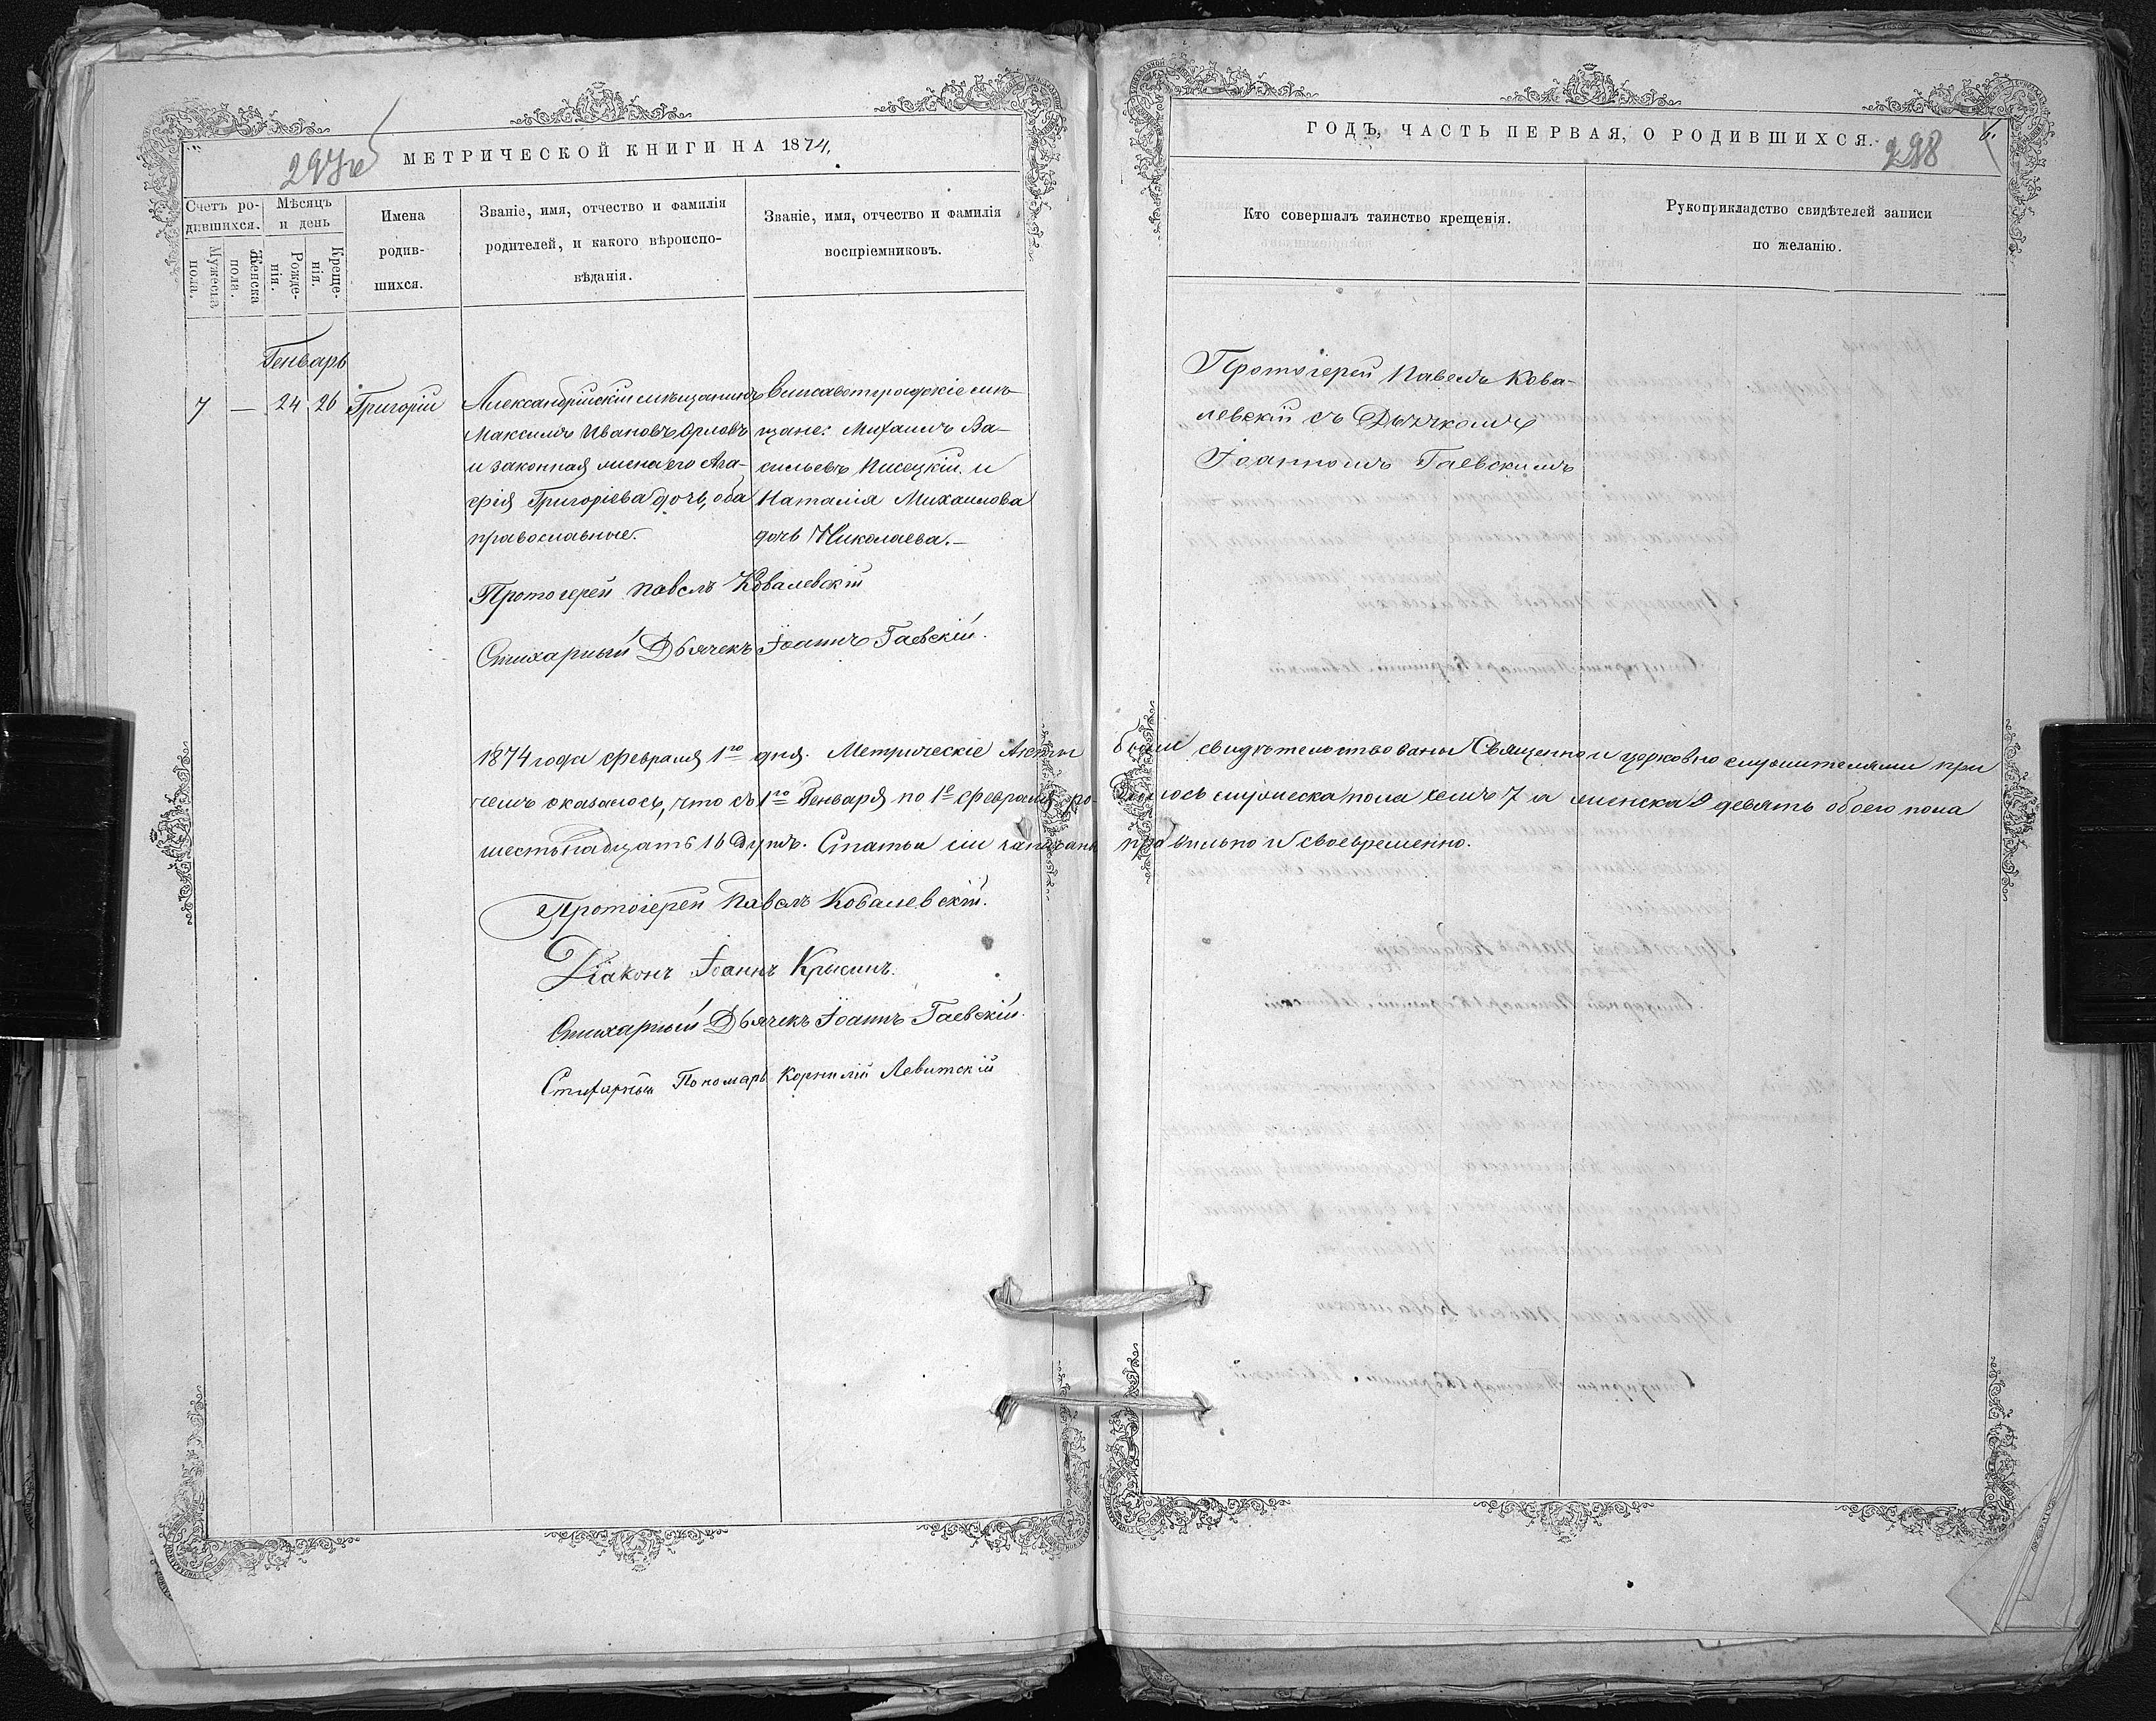 МЕТРИЧЕСКОЙ КНИГИ НА 1874,
Счетъ ро-
дившихся.
Мужеска
пола.
Женска
пола.
Мѣсяцъ
и день
Рожде-
нія.
Креще-
нія.
Имена
родив-
шихся.
Званіе, имя, отчество и фамилія
родителей, и какого вѣроиспо-
вѣданія.
Званіе, имя, отчество и фамилія
воспріемниковъ.
Генварь
7 — 24 26 Григорій
Александрійскій мѣщанинъ
Максимъ Ивановъ Орловъ
и законная жена его Ага-
фія Григоріева дочь, оба
православные.
Елисаветградскіе мѣ-
щане: Михаилъ Ва-
сильевъ Писецкій и
Наталія Михаилова
дочь Николаева.—
Протоіерей Павелъ Ковалевскій
Стихарный Дьячекъ Іоаннъ Гаевскій.
ГОДЪ, ЧАСТЬ ПЕРВАЯ, О РОДИВШИХСЯ.
298
Кто совершалъ таинство крещенія.
Рукоприкладство свидѣтелей записи
по желанію.
Протоіерей Павелъ Кова-
левскій съ Дьячкомъ
Іоанномъ Гаевскимъ
1874 года февраля 1го дня. Метрическіе Акты были свидѣтельствованы Священно и церковно служителями при
чемъ оказалось, что съ 1го Генваря по 1е февраля ро- дилось мужеска пола семь 7 а женска 9 девять обоего пола
шестьнадцать 16 душъ. Статьи сіи записаны правильно и своевременно.
Протоіерей Павелъ Ковалевскій.
Діаконъ Іоаннъ Крысинъ.
Стихарный Дьячекъ Іоаннъ Гаевскій.
Стихарный Пономарь Корнилій Левитскій